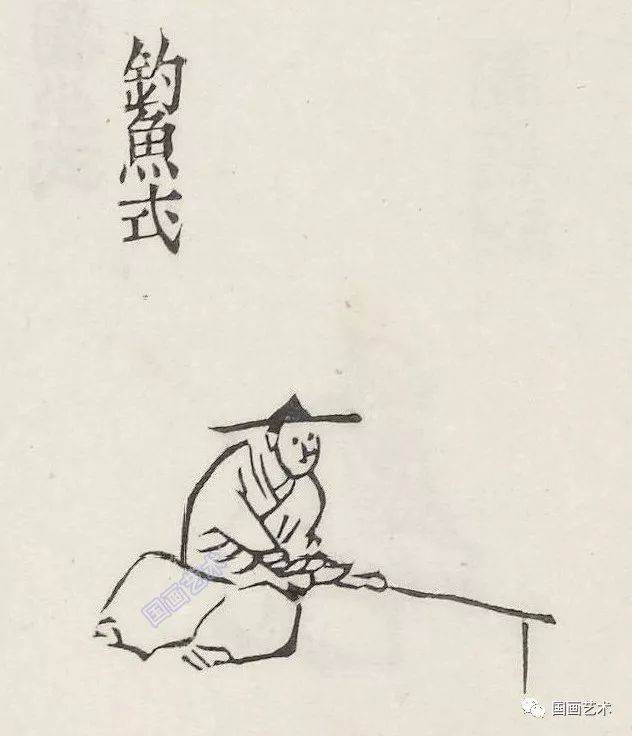 釣魚式
国画艺术
国画艺术